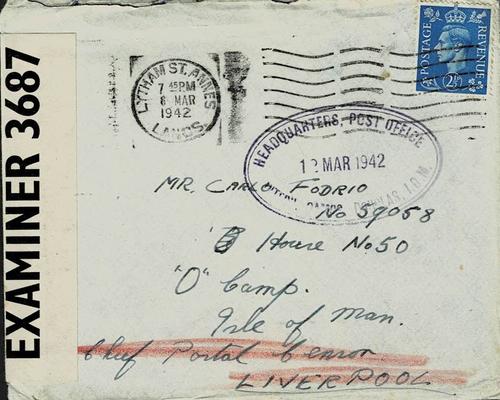 EXAMINER 3687
LYTHAM ST. ANNES
7 15 PM
6 MAR
1942
LANCS
POSTAGE REVENUE
2½D
HEADQUARTERS, POST OFFICE
12 MAR 1942
CAMPS, DOUGLAS, I.O.M.
MR. CARLO FODRIO
No 59058
House No 50
"O" Camp.
Isle of Man.
Chief Postal Censor
LIVERPOOL